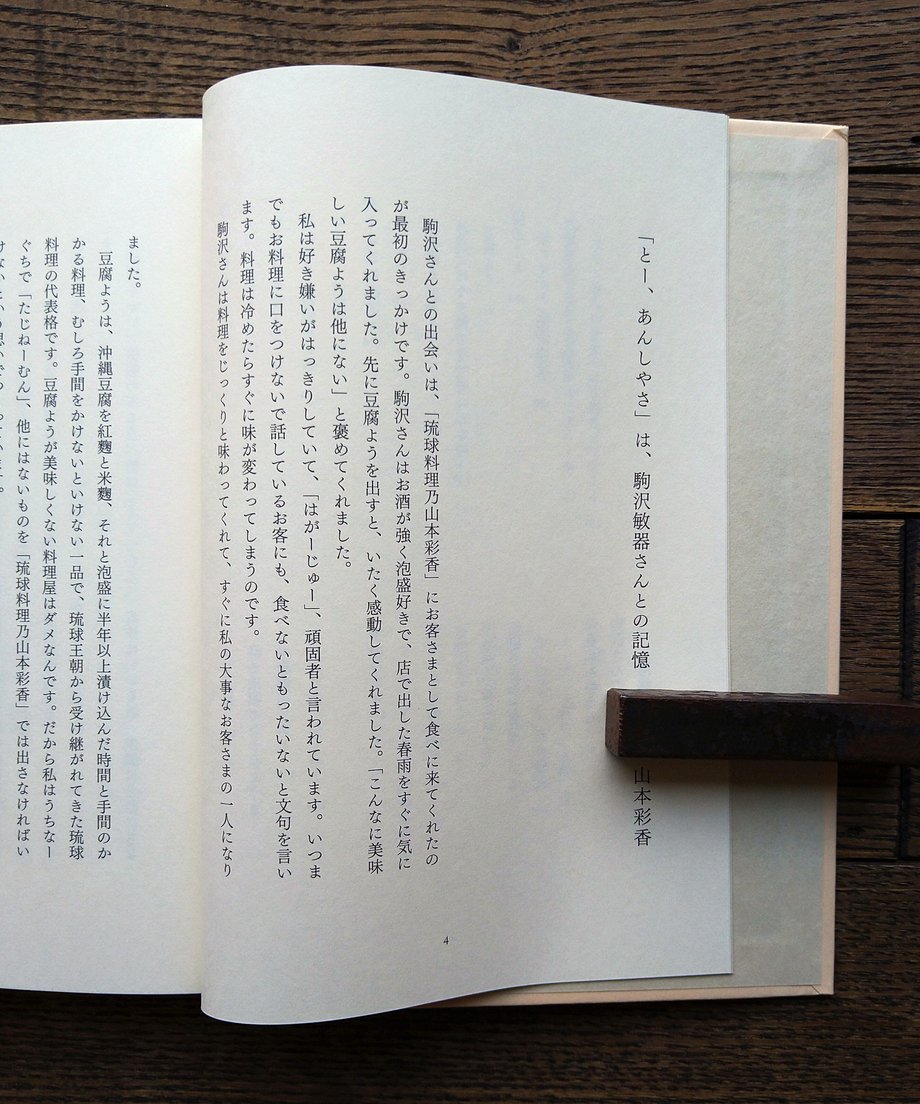 「とー、あんしやさ」は、駒沢敏器さんとの記憶
山本彩香
駒沢さんとの出会いは、「琉球料理乃山本彩香」にお客さまとして食べに来てくれたの
が最初のきっかけです。駒沢さんはお酒が強く泡盛好きで、店で出した春雨をすぐに気に
入ってくれました。先に豆腐ようを出すと、いたく感動してくれました。「こんなに美味
しい豆腐ようは他にない」と褒めてくれました。
私は好き嫌いがはっきりしていて、「はがーじゅー」、頑固者と言われています。いつま
でもお料理に口をつけないで話しているお客にも、食べないともったいないと文句を言い
ます。料理は冷めたらすぐに味が変わってしまうのです。
駒沢さんは料理をじっくりと味わってくれて、すぐに私の大事なお客さまの一人になり
4
ました。
豆腐ようは、沖縄豆腐を紅麴と米麴、それと泡盛に半年以上漬け込んだ時間と手間のか
かる料理、むしろ手間をかけないといけない一品で、琉球王朝から受け継がれてきた琉球
料理の代表格です。豆腐ようが美味しくない料理屋はダメなんです。だから私はうちなー
ぐちで「たじねーむん」、他にはないものを「琉球料理乃山本彩香」では出さなければい